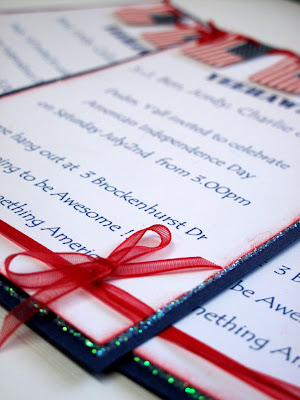 YEEHAW
Ben, Jordy, Charlie
Dudes, Y'all invited to celebrate
American Independence Day
on Saturday July2nd from 3.00pm
hang out at 3 Brockenhurst Dr
ing to be Awesome !
mething Americ
3 B
be Awesome
omething Am